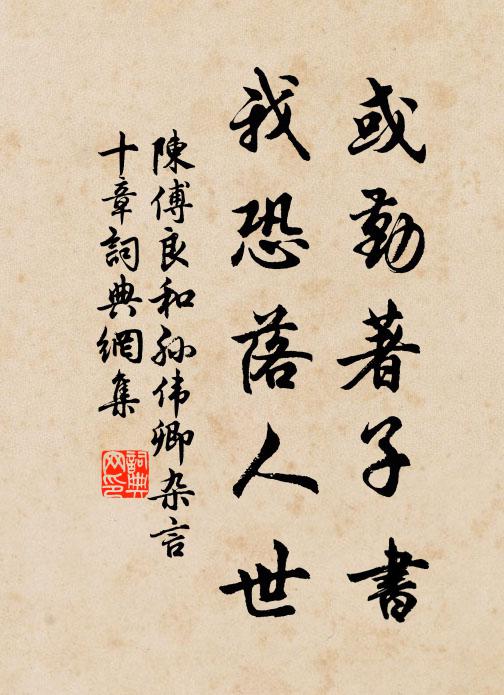 或勤著子書
我恐落人世
陳傅良和孫伟卿杂言
十章詞典網集
詞典网印